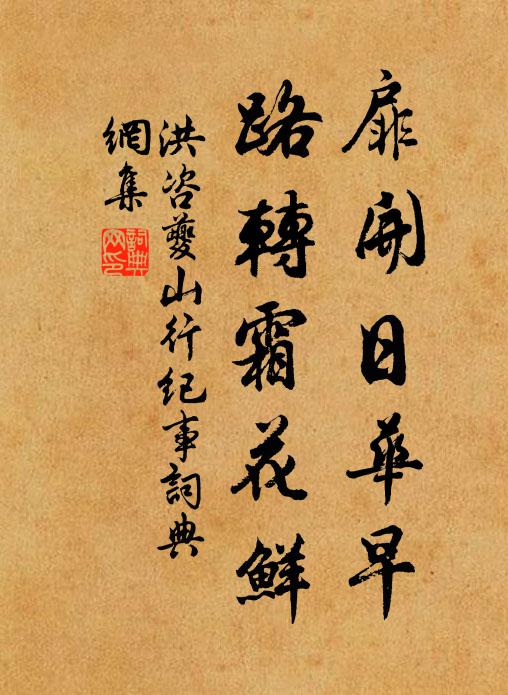 扉開日華早
路轉霜花鮮
洪咨夔山行纪事詞典
網集
詞典
网印